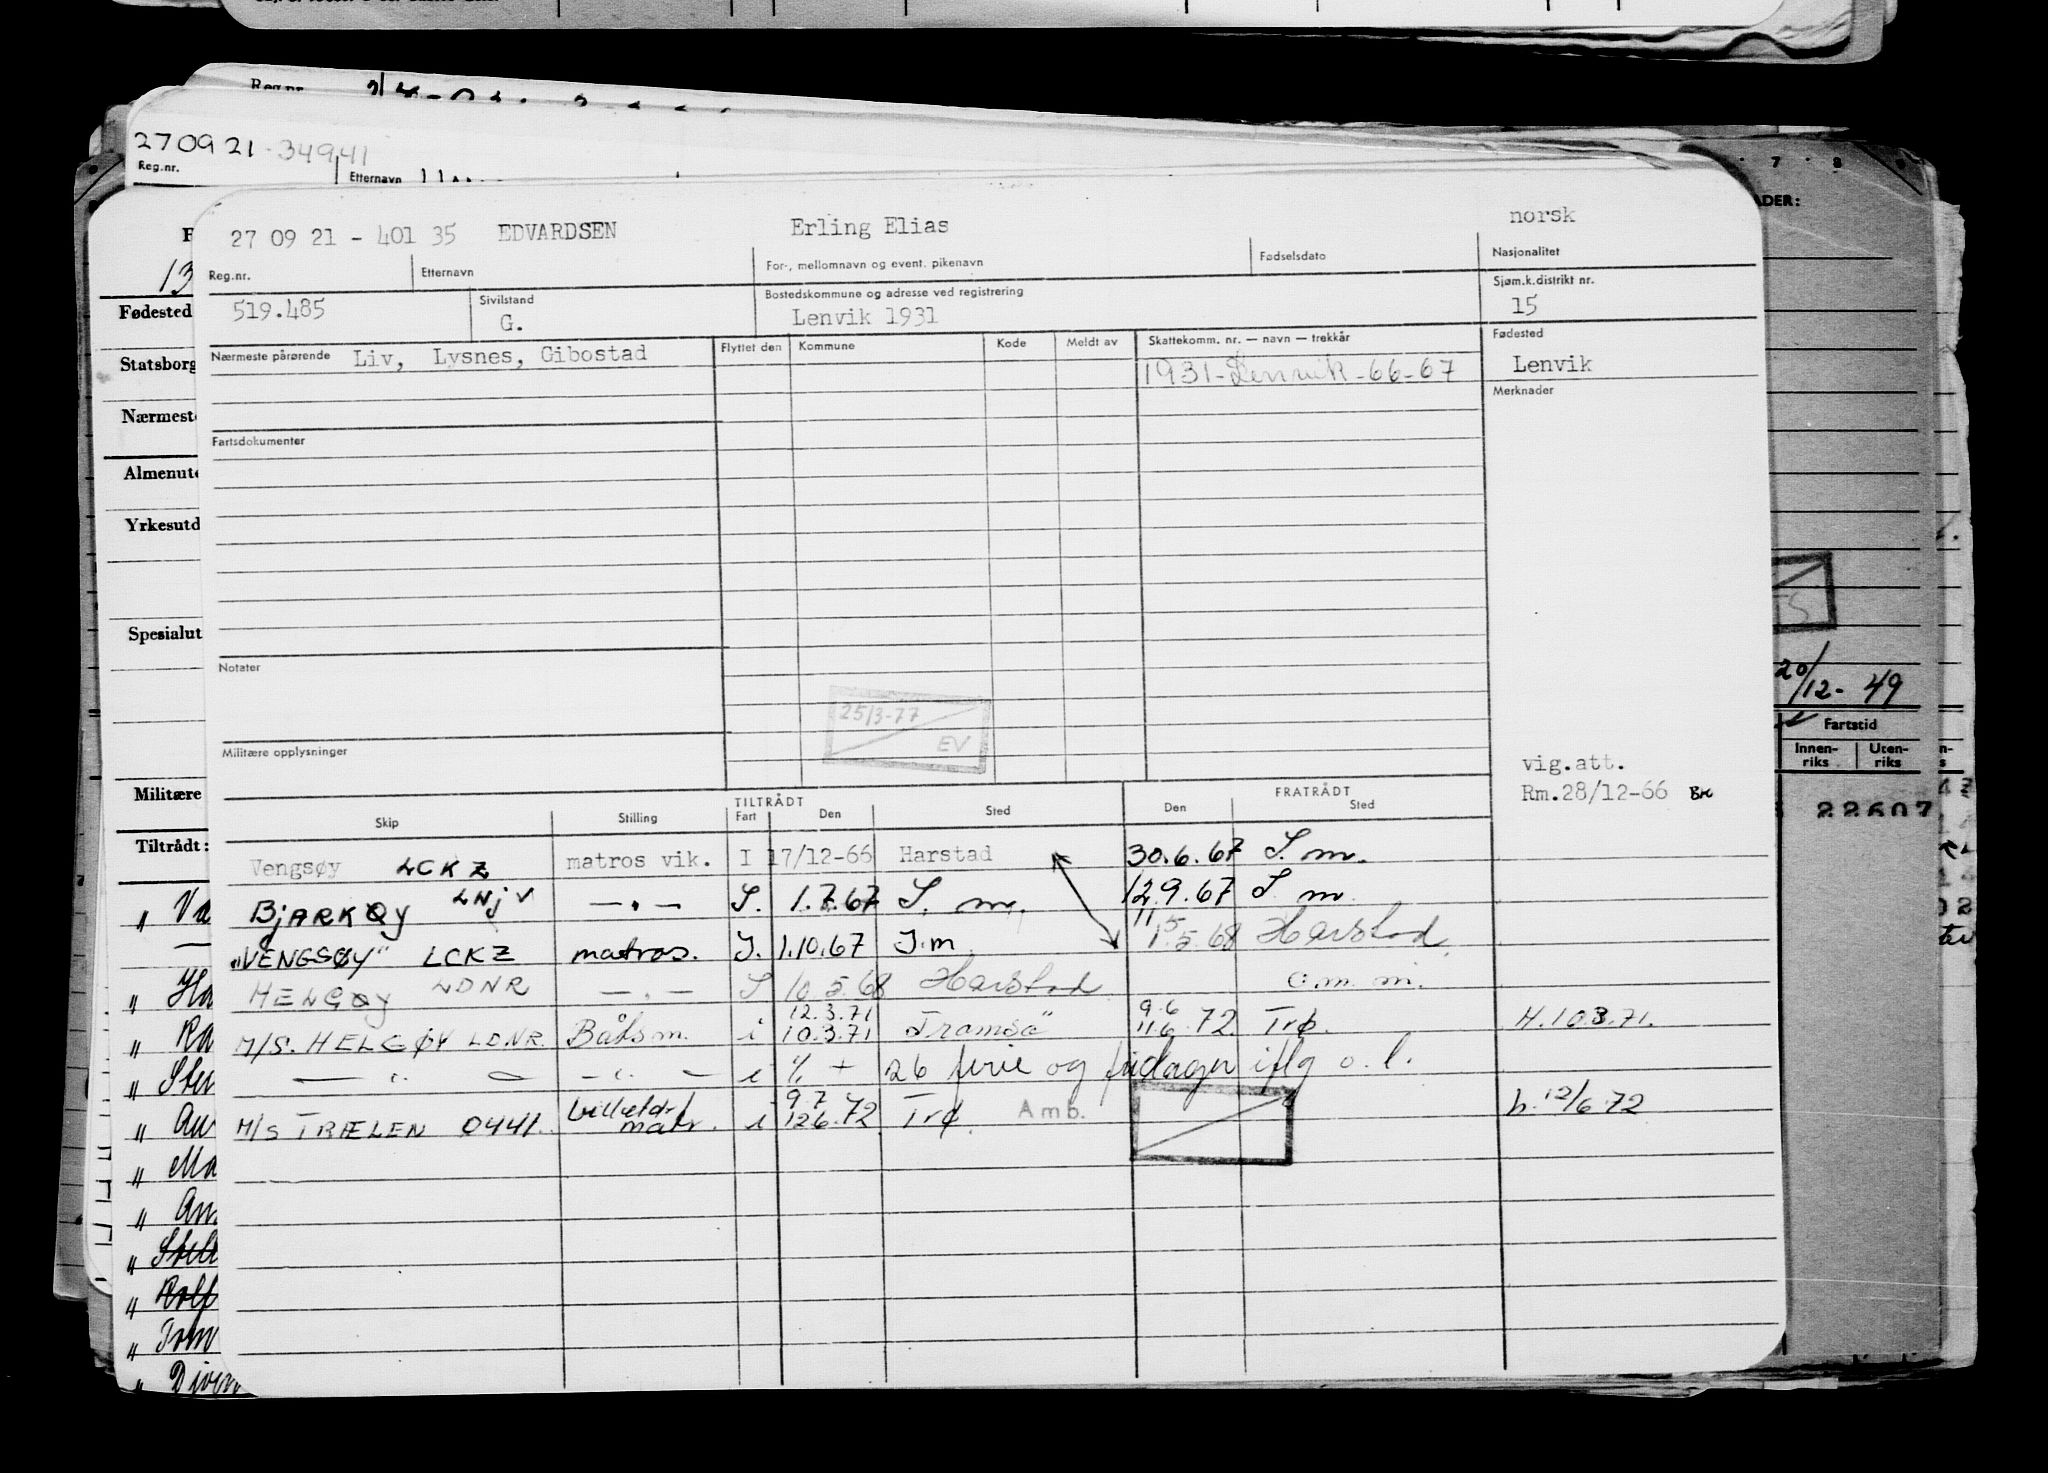 Reg.nr.
27 09 21 - 34941
Reg.nr. Etternavn
27 09 21 - 401 35 EDVARDSEN Erling Elias norsk
Reg.nr. Etternavn For-, mellomnavn og event. pikenavn Fødselsdato Nasjonalitet
519.485 Sivilstand G. Bostedskommune og adresse ved registrering Lenvik 1931 Sjøm.k.distrikt nr. 15
Nærmeste pårørende Liv, Lysnes, Gibostad Flyttet den Kommune Kode Meldt av Skattekomm. nr. — navn — trekkår Fødested
1931-Lenvik-66-67 Lenvik
Merknader
Fartsdokumenter
Notater
25/3-77
EV
Militære opplysninger
vig.att.
Rm.28/12-66 BK
TILTRÅDT FRATRÅDT
Skip Stilling Fart Den Sted Den Sted
Vengsøy LCKZ matros vik. I 17/12-66 Harstad 30.6.67 S.m.
BJARKØY LNJV —"— S. 1.7.67 S.m. 12.9.67 S m
"VENGSØY" LCKZ matros. I. 1.10.67 I.m 11 5 1.5.68 Harstad
HELGØY LDNR —"— S 10.5.68 Harstad o.m.m.
M/S. HELGØY LDNR. Båtsm. i 12.3.71 10.3.71 Tromsø 9.6 11.6.72 Trø. H.10.3.71.
—"— —"— i % + 26 ferie og fridager iflg o.l.
M/S TRÆLEN 0441. billettør/matr. i 9.7 12.6.72 Trø Amb. h.12/6.72
13
Fødested
Statsborg
Nærmest
Almenut
Yrkesutd
Spesialut
Militære
Tiltrådt:
" Ha
" Ra
" Ma
7 8
ADER:
20/12-49
Fartstid
Innen-riks Uten-riks
22607